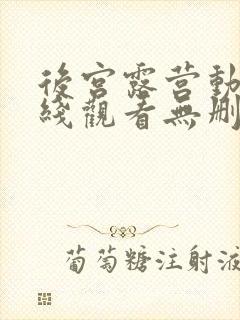 後宮露营動
綫觀看無删
葡萄糖注射液